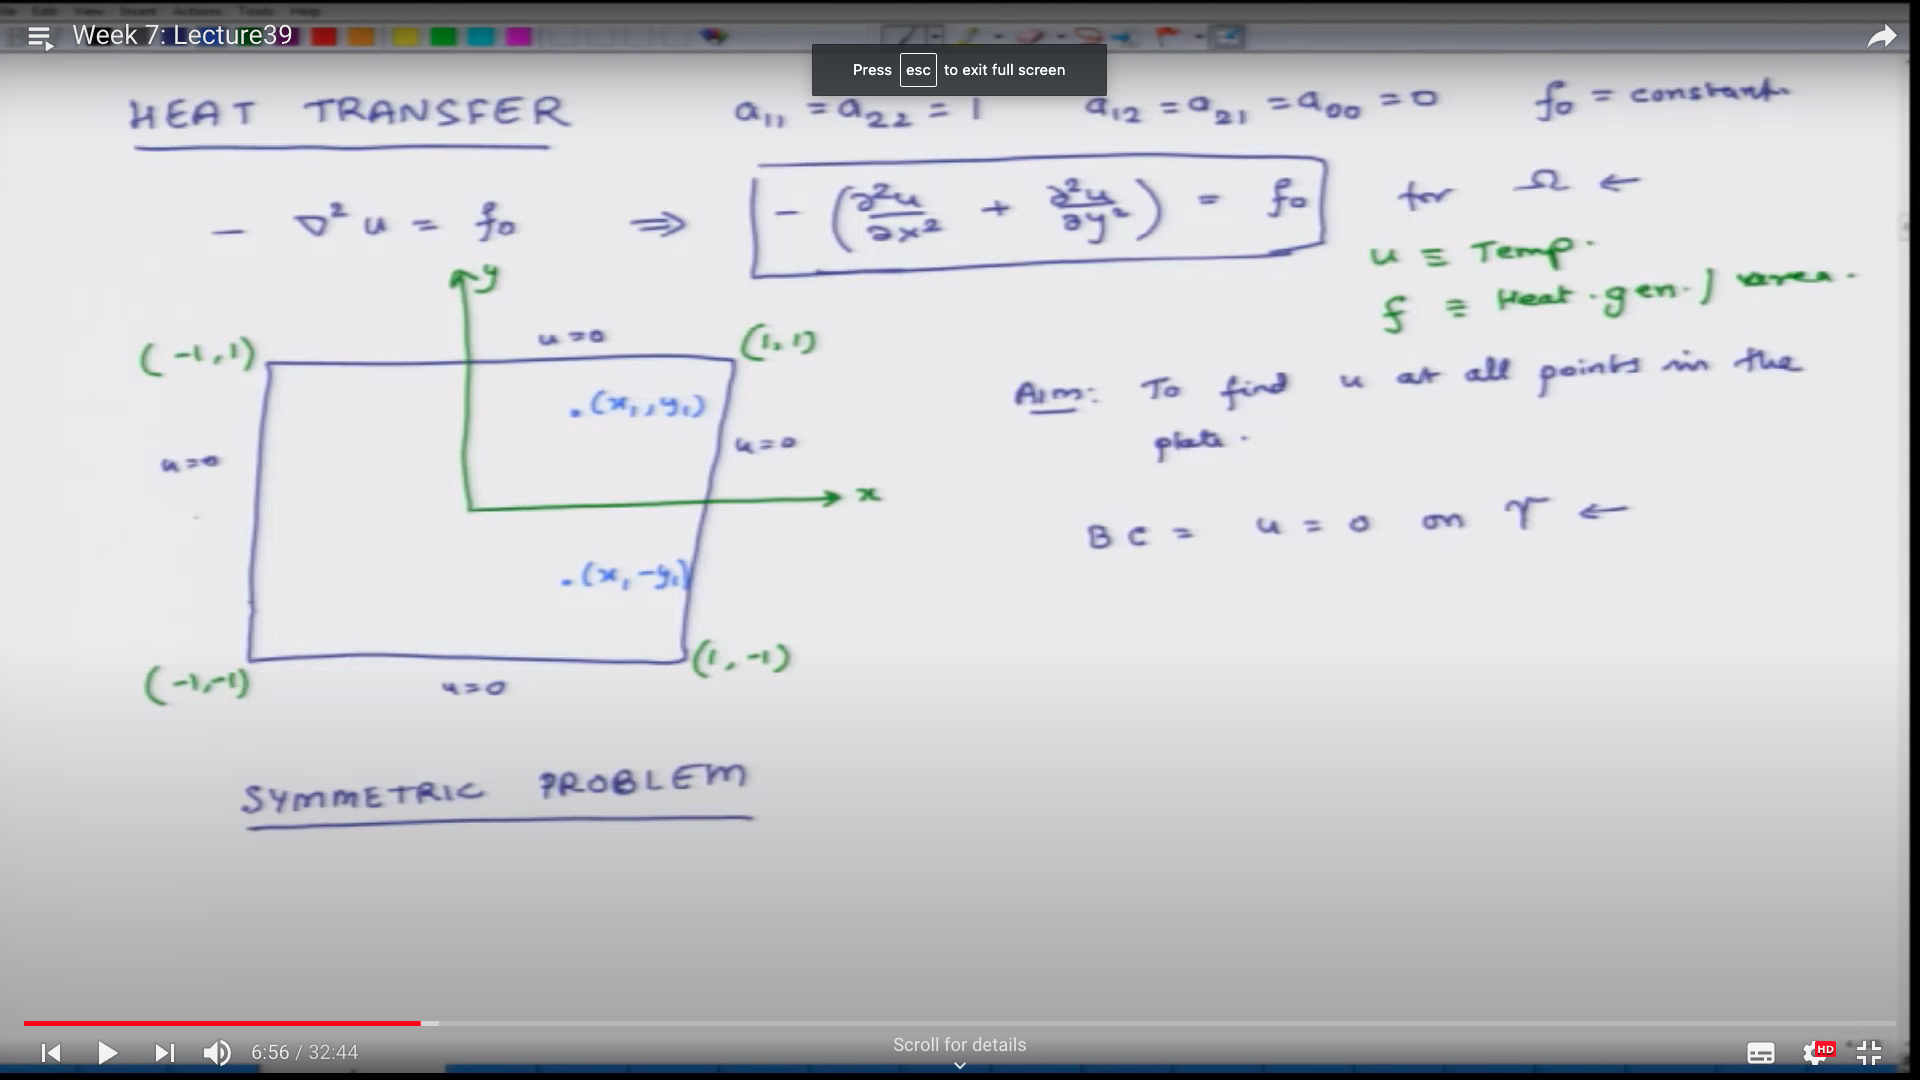 File Edit View Insert Actions Tools Help
Week 7: Lecture39
Press esc to exit full screen
HEAT TRANSFER a₁₁ = a₂₂ = 1 a₁₂ = a₂₁ = a₀₀ = 0 f₀ = constant.
- ∇²u = f₀ ⇒ - (∂²u/∂x² + ∂²u/∂y²) = f₀ for Ω ←
u ≡ Temp.
f ≡ Heat.gen./area.
y
(-1,1) u=0 (1,1)
.(x₁,y₁)
u=0 u=0
x
.(x₁-y₁)
(-1,-1) u=0 (1,-1)
Aim: To find u at all points in the
plate.
BC = u = 0 on Γ ←
SYMMETRIC PROBLEM
6:56 / 32:44
Scroll for details
HD